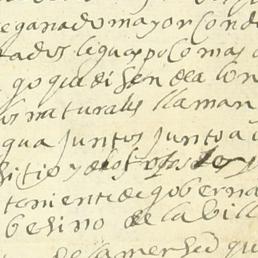 ganado mayor con do
tados leguas poco mas o
go que disen de la lon
os naturales llaman
gua juntos junto a
sitio y
teniente de gobernad
besino de la bill
de la merced qu